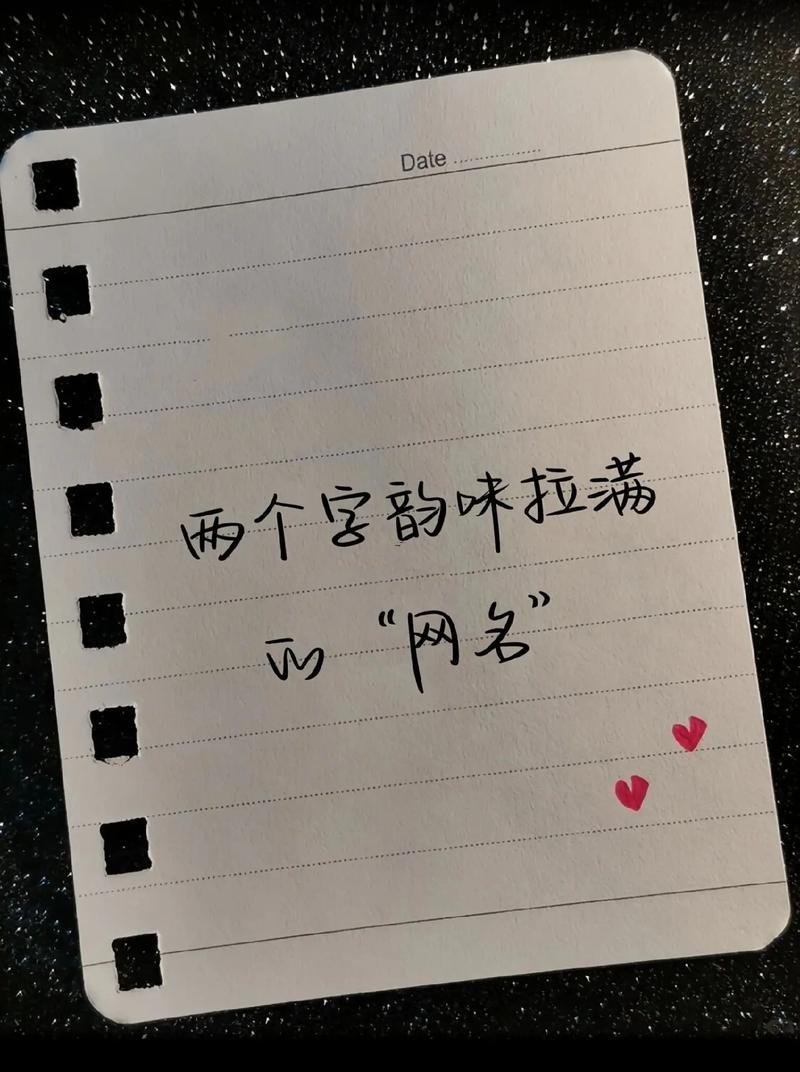 Date
两个字韵味拉满
的“网名”